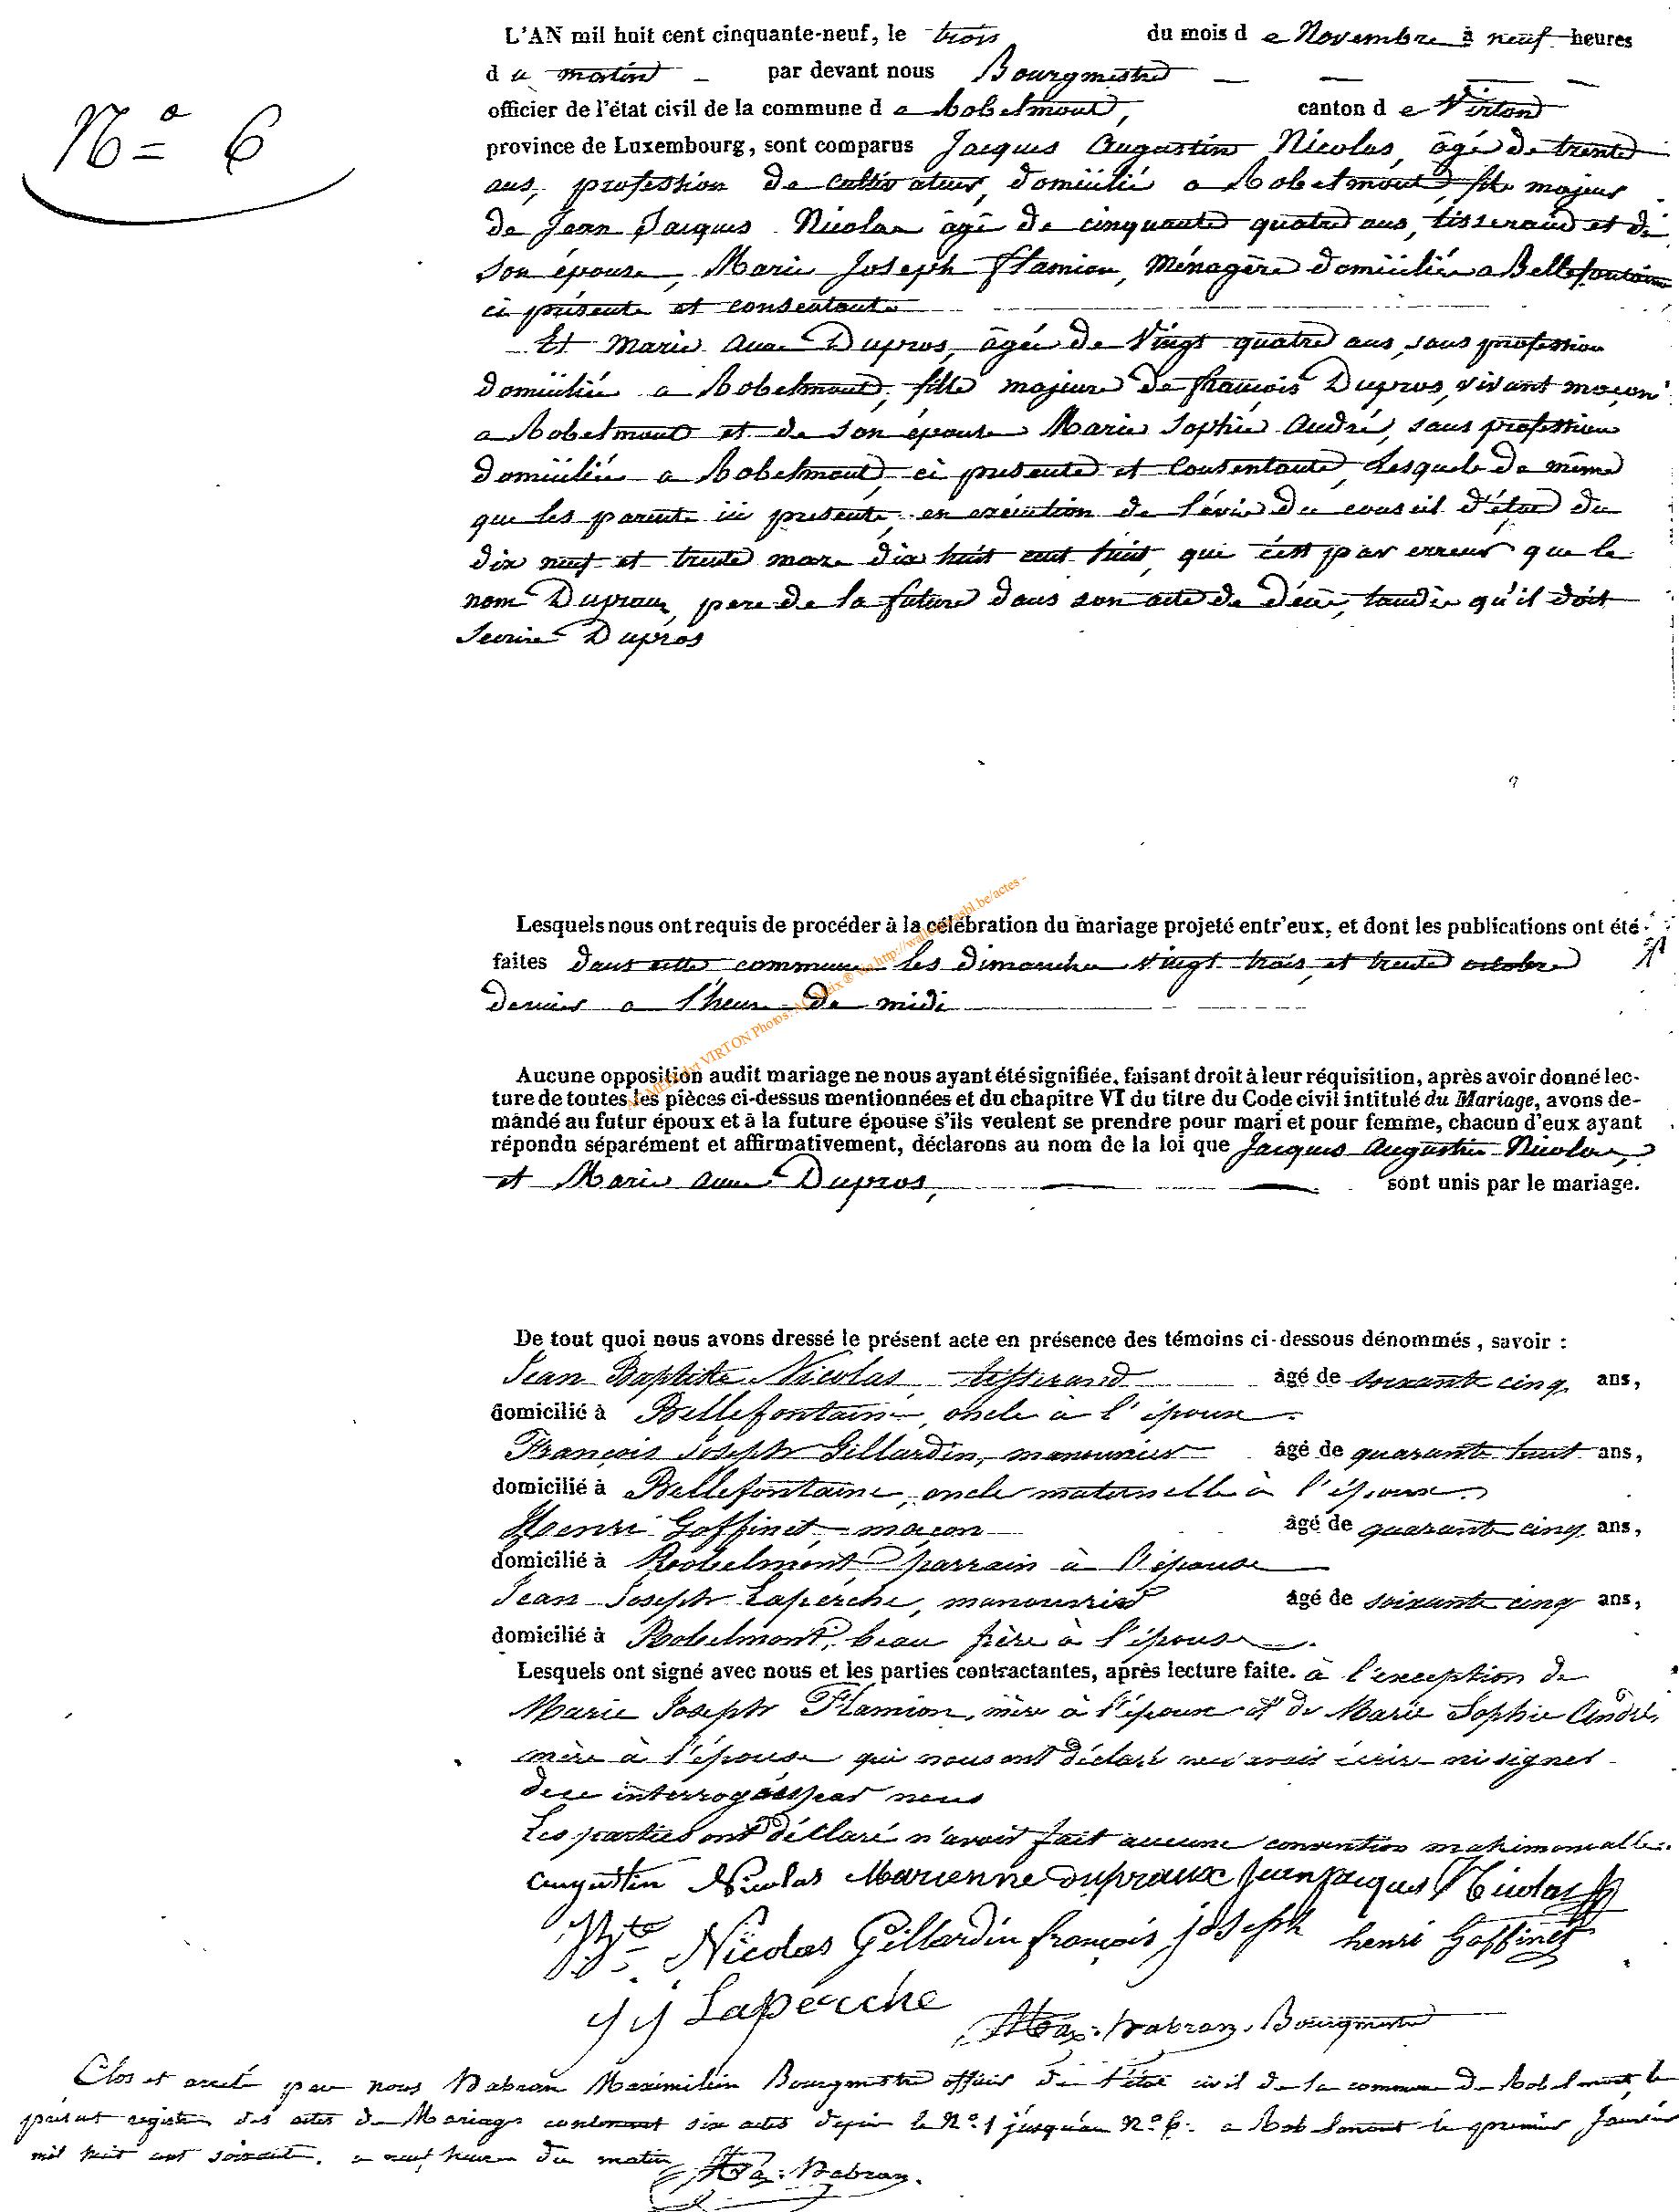 N° 6
L'AN mil huit cent cinquante-neuf, le trois du mois de Novembre à neuf heures
du matin par devant nous Bourgmestre
officier de l'état civil de la commune de Robelmont, canton de Virton
province de Luxembourg, sont comparus Jacques Augustin Nicolas, âgé de trente
ans, profession de cultivateur, domicilié a Robelmont, fils majeur
de Jean Jacques Nicolas âgé de cinquante quatre ans, tisserand et de
son épouse, Marie Joseph Flamion, Ménagère domiciliés a Bellefontaine
ci présents et consentants
Et Marie Anne Dupros, âgée de Vingt quatre ans, sans profession
domiciliée a Robelmont, fille majeure de françois Dupros, vivant maçon
a Robelmont et de son épouse Marie Sophie André, sans profession
domiciliée a Robelmont, ci presente et Consentante, Lesquels de même
que les parents ici presents, en exécution de l'avis du conseil d'état du
dix neuf et trente mars dix huit cent huit, que c'est par erreur que le
nom Dupraux, pere de la future dans son acte de décès, tandis qu'il doit
s'ecrire Dupros
Lesquels nous ont requis de procéder à la célébration du mariage projeté entr'eux, et dont les publications ont été
faites dans cette commune les dimanches vingt trois et trente octobre
dernier a l'heure de midi
Aucune opposition audit mariage ne nous ayant été signifiée, faisant droit à leur réquisition, après avoir donné lec-
ture de toutes les pièces ci-dessus mentionnées et du chapitre VI du titre du Code civil intitulé du Mariage, avons de-
mandé au futur époux et à la future épouse s'ils veulent se prendre pour mari et pour femme, chacun d'eux ayant
répondu séparément et affirmativement, déclarons au nom de la loi que Jacques Augustin Nicolas,
et Marie Anne Dupros, sont unis par le mariage.
De tout quoi nous avons dressé le présent acte en présence des témoins ci-dessous dénommés, savoir :
Jean Baptiste Nicolas, tisserand âgé de soixante cinq ans,
domicilié à Bellefontaine, oncle à l'époux
François Joseph Gillardin, manouvrier âgé de quarante huit ans,
domicilié à Bellefontaine, oncle maternelle à l'époux
Henri Goffinet, maçon âgé de quarante cinq ans,
domicilié à Robelmont, parrain à l'épouse
Jean Joseph Laperche, manouvrier âgé de soixante cinq ans,
domicilié à Robelmont, beau frère à l'épouse
Lesquels ont signé avec nous et les parties contractantes, après lecture faite. à l'exception de
Marie Joseph Flamion, mère à l'époux et de Marie Sophie André,
mère à l'épouse qui nous ont déclaré ne savoir écrire ni signer
de ce interrogées par nous
Les parties ont déclaré n'avoir fait aucune convention matrimonialle.
augustin Nicolas Marienne dupraux Jean jacques Nicolas
JBte Nicolas Gillardin françois joseph henri Goffinet
J J Laperche Max: Nabran, Bourgmestre
Clos et arrêté par nous Nabran Maximilien Bourgmestre officier de l'état civil de la commune de Robelmont, le
présent registre des actes de Mariage contenant six actes depuis le N° 1 jusqu'au N° 6. a Robelmont le premier Janvier
mil huit cent soixante, a neuf heures du matin Max: Nabran.